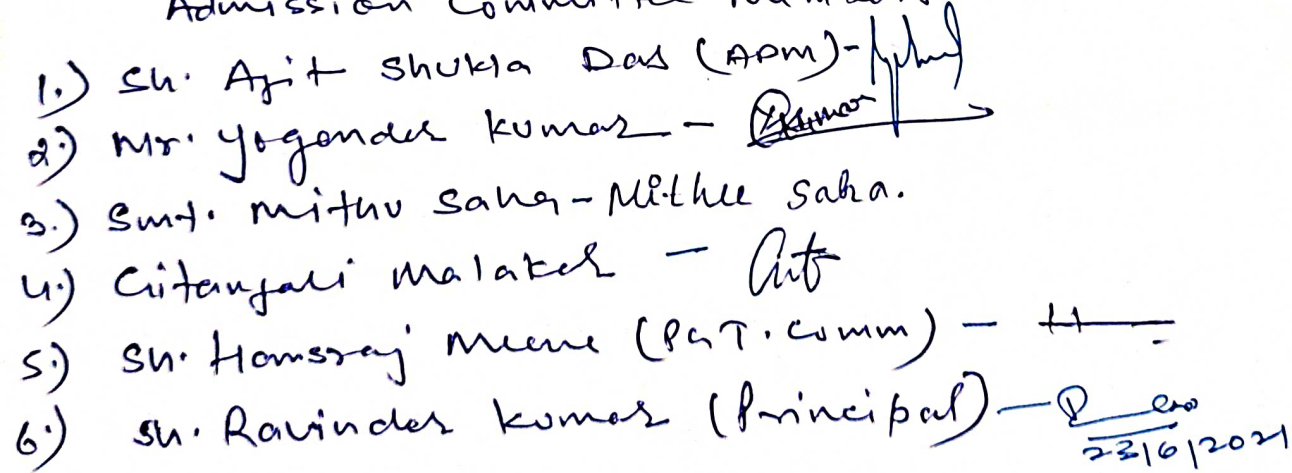 Admission Committee
1.) Sh. Ajit Shukla Das (ADM) -
2.) Mr. Yogender Kumar - Ykumar
3.) Smt. Mithu Saha - Mithu Saha.
4.) Gitanjali Malaker -
5.) Sh. Hansraj Meena (PGT. Comm) - H
6.) Sh. Ravinder Kumar (Principal) -
23/6/2021